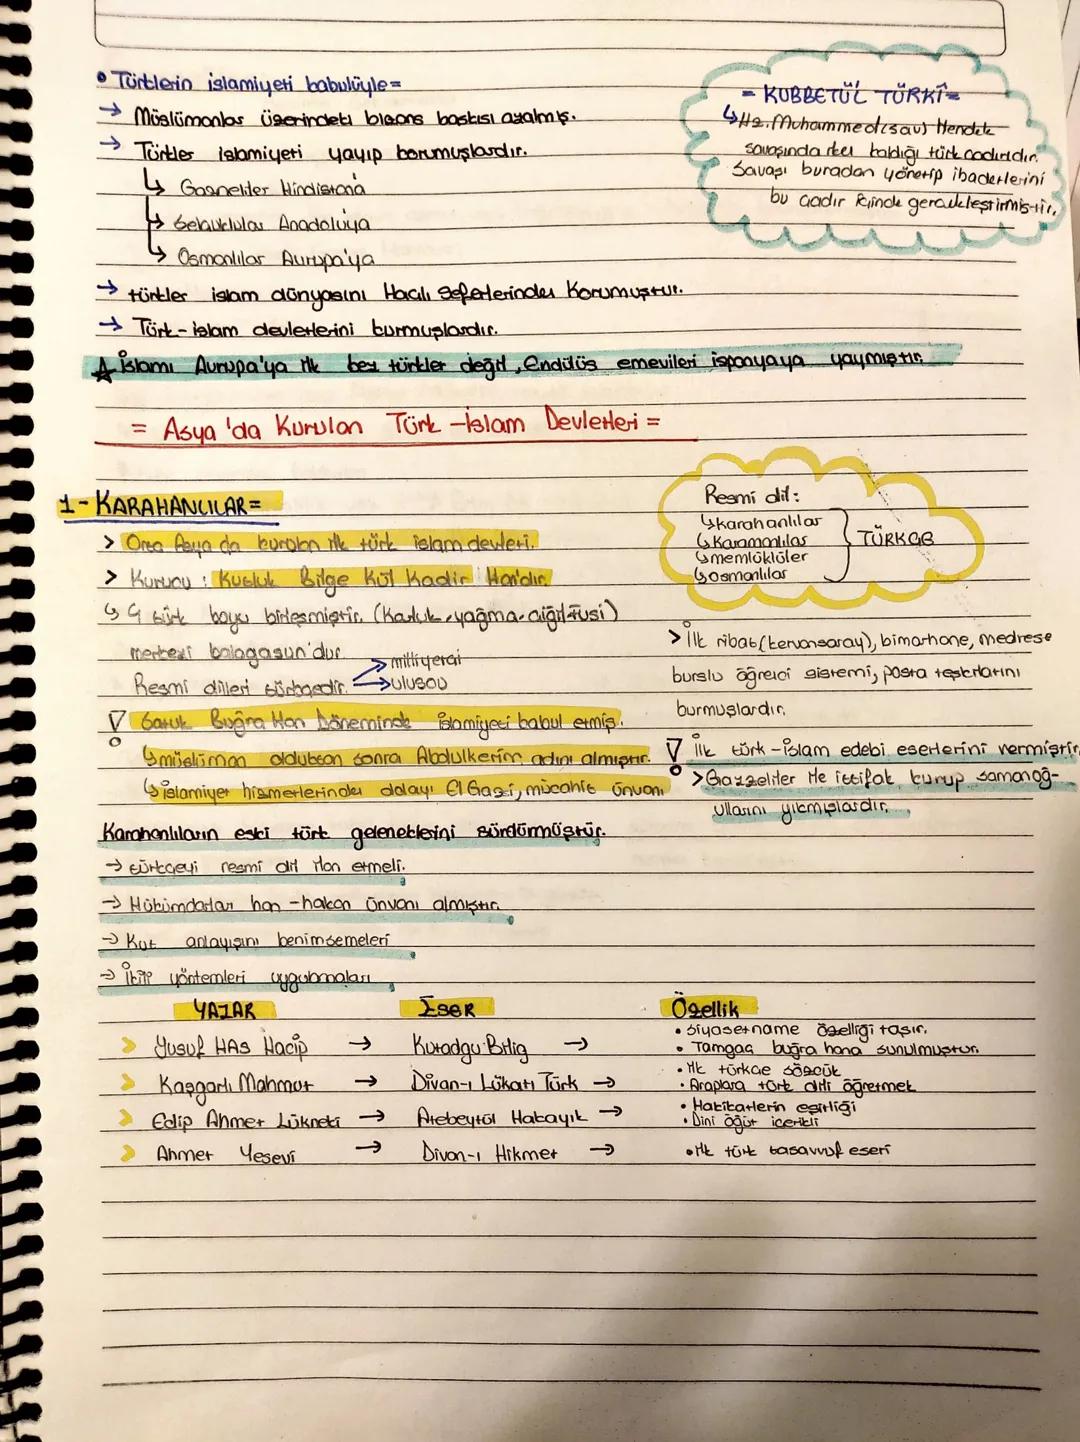 • Türklerin islamiyeti kabulüyle=
→ Müslümanlar üzerindeki bizans baskısı azalmış.
→ Türkler islamiyeti yayıp korumuşlardır.
↳ Gazneliler Hindistana
↳ Selçuklular Anadoluya
↳ Osmanlılar Avrupa'ya
→ türkler islam dünyasını Haçlı Seferlerinden Korumuştur.
→ Türk-islam devletlerini kurmuşlardır.
İslamı Avrupa'ya ilk kez türkler değil, Endülüs emevileri ispanyaya yaymıştır.
= KUBBETÜL TÜRKÎ=
↳Hz. Muhammed(sav) Hendek
savaşında iken kaldığı türk çadırıdır.
Savaşı buradan yönetip ibadetlerini
bu çadır içinde gerçekleştirmiştir.
= Asya'da Kurulan Türk-İslam Devletleri =
1- KARAHANLILAR=
> Orta Asya da kurulan ilk türk islam devleti.
> Kurucu: Kutluk Bilge Kül Kadir Han'dır.
↳ 4 türk boyu birleşmiştir. (Karluk, yağma, çiğil, Tusi)
merkezi balagasun'dur.
Resmi dilleri türkçedir. → milliyetçi
→ ulusçu
Satuk Buğra Han Döneminde islamiyeti kabul etmiş.
↳müslüman olduktan sonra Abdulkerim adını almıştır.
↳islamiyet hizmetlerinden dolayı El Gazi, mücahit ünvanı
Resmi dil:
↳Karahanlılar
↳Karamanlılar
↳memlüklüler
↳osmanlılar
TÜRKÇE
> İlk ribat(kervansaray), bimarhane, medrese
burslu öğrenci sistemi, posta teşkilatını
kurmuşlardır.
ilk türk-islam edebi eserlerini vermiştir
>Gazzeliler ile ittifak kurup samanoğ-
ullarını yıkmışlardır.
Karahanlıların eski türk geleneklerini sürdürmüştür.
→ türkçeyi resmi dil ilan etmeli.
→ Hükümdarlar han-hakan ünvanı almıştır.
→ Kut anlayışını benimsemeleri
→ ikili yöntemleri uygulamaları
YAZAR ESER Özellik
> Yusuf HAs Hacip → Kutadgu Bilig → • Siyasetname özelliği taşır.
• Tamgaç buğra hana sunulmuştur.
> Kaşgarlı Mahmut → Divan-ı Lükatı Türk → • ilk türkçe sözcük
• Araplara türk dili öğretmek
> Edip Ahmet Lükneki → Atebeytül Hakayık → • Hakikatlerin eşitliği
• Dini öğüt içerikli
> Ahmet Yesevi → Divan-ı Hikmet → • ilk türk tasavvuf eseri